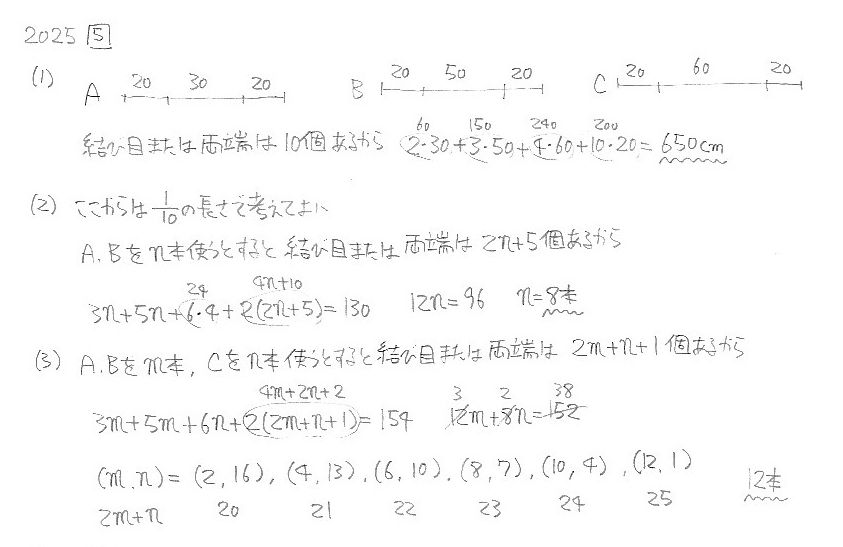 2025 5
(1) A 20 30 20 B 20 50 20 C 20 60 20
60 150 240 200
結び目または両端は10個あるから 2・30+3・50+4・60+10・20=650cm
(2) ここからは 1/10 の長さで考えてよい
A.Bをn本使うとすると結び目または両端は2n+5個あるから
24 4n+10
3n+5n+6・4+2(2n+5)=130 12n=96 n=8本
(3) A.Bをm本, Cをn本使うとすると結び目または両端は 2m+n+1個あるから
4m+2n+2 3 2 38
3m+5m+6n+2(2m+n+1)=154 12m+8n=152
(m.n)= (2,16), (4,13), (6,10), (8,7), (10,4), (12,1) 12本
2m+n 20 21 22 23 24 25